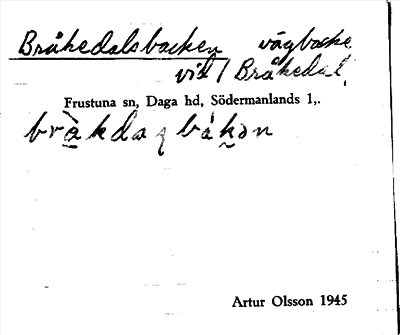 Bråkedalsbacken vägbacke
vid Bråkedal.
Frustuna sn, Daga hd, Södermanlands l,.
Artur Olsson 1945